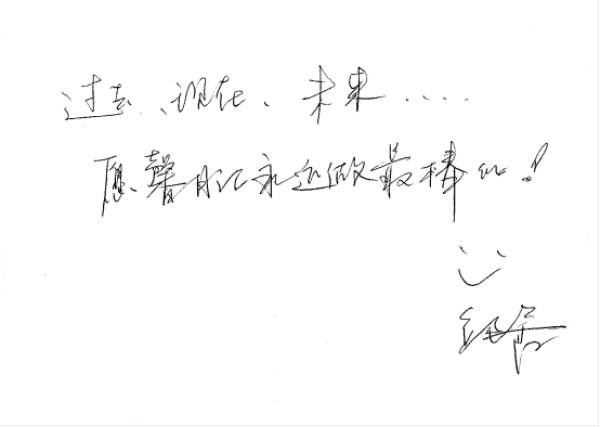 过去、现在、未来....
愿馨月汇永远做最棒的！